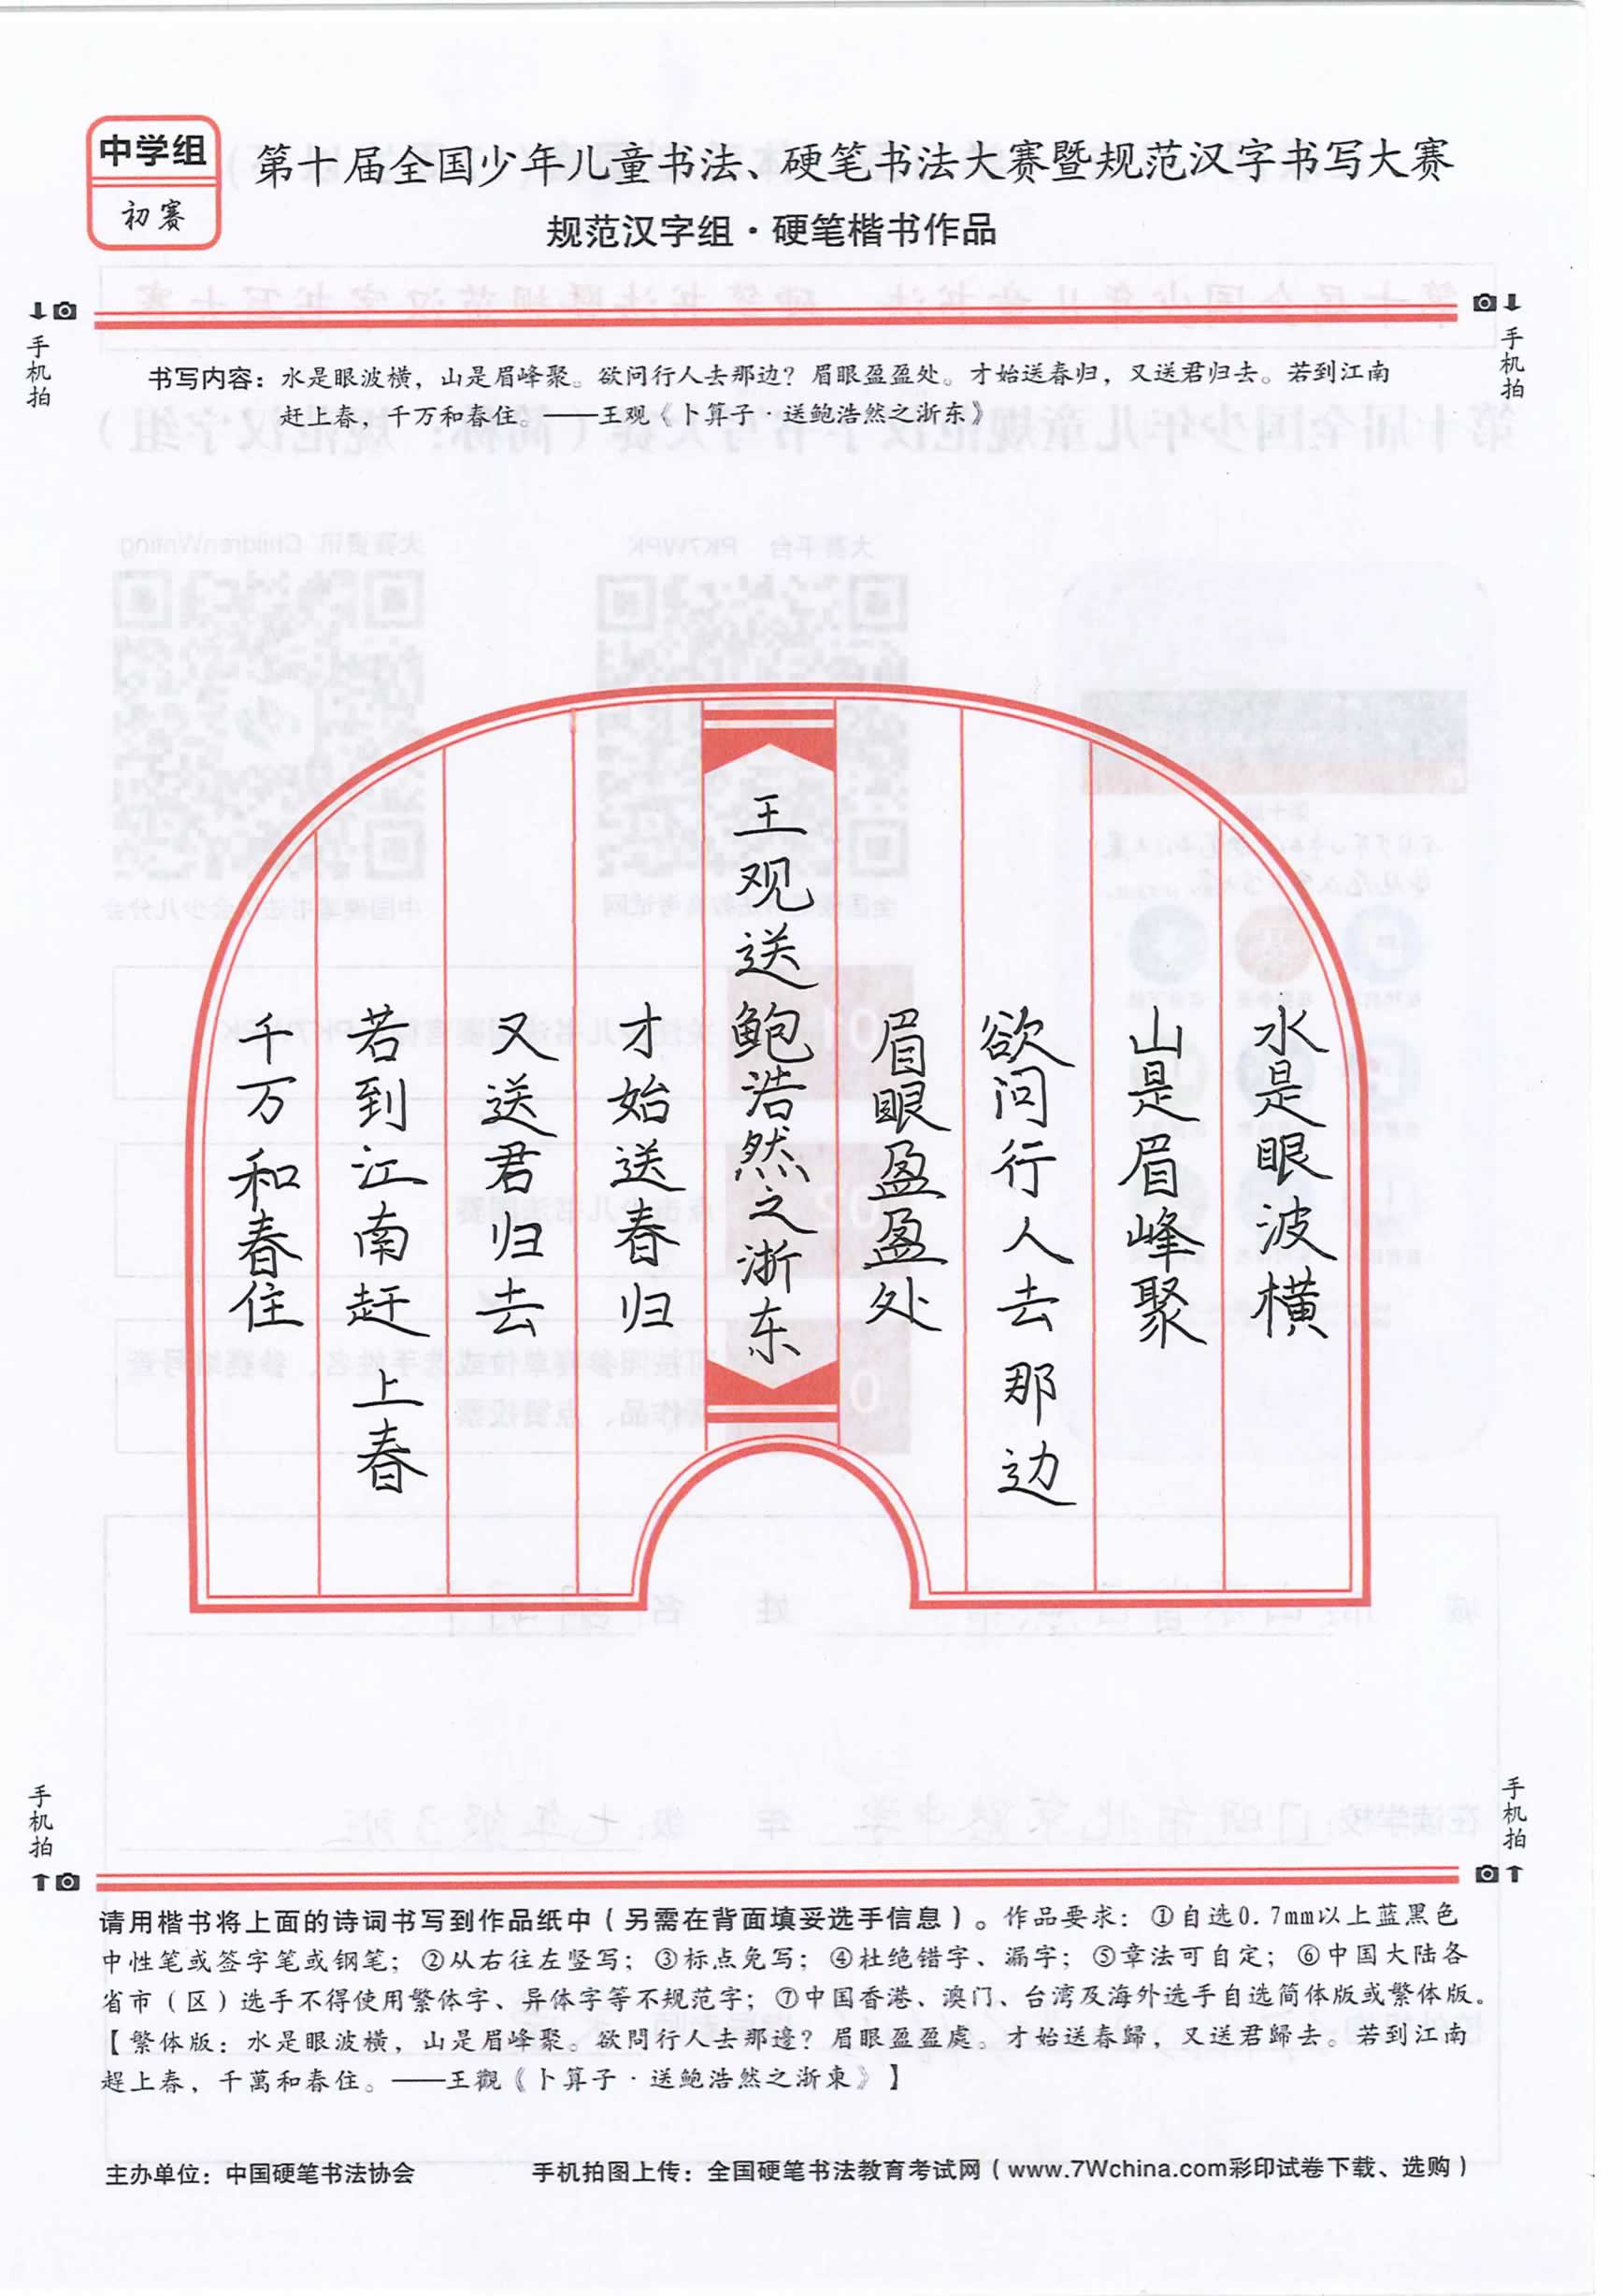 中学组
初赛
第十届全国少年儿童书法、硬笔书法大赛暨规范汉字书写大赛
规范汉字组·硬笔楷书作品
手机拍
手机拍
书写内容：水是眼波横，山是眉峰聚。欲问行人去那边？眉眼盈盈处。才始送春归，又送君归去。若到江南
赶上春，千万和春住。——王观《卜算子·送鲍浩然之浙东》
水是眼波横
山是眉峰聚
欲问行人去那边
眉眼盈盈处
王观送鲍浩然之浙东
才始送春归
又送君归去
若到江南赶上春
千万和春住
手机拍
手机拍
请用楷书将上面的诗词书写到作品纸中（另需在背面填妥选手信息）。作品要求：①自选0.7mm以上蓝黑色
中性笔或签字笔或钢笔；②从右往左竖写；③标点免写；④杜绝错字、漏字；⑤章法可自定；⑥中国大陆各
省市（区）选手不得使用繁体字、异体字等不规范字；⑦中国香港、澳门、台湾及海外选手自选简体版或繁体版。
【繁体版：水是眼波横，山是眉峰聚。欲問行人去那邊？眉眼盈盈處。才始送春歸，又送君歸去。若到江南
趕上春，千萬和春住。——王觀《卜算子·送鲍浩然之浙東》】
主办单位：中国硬笔书法协会
手机拍图上传：全国硬笔书法教育考试网（www.7Wchina.com彩印试卷下载、选购）